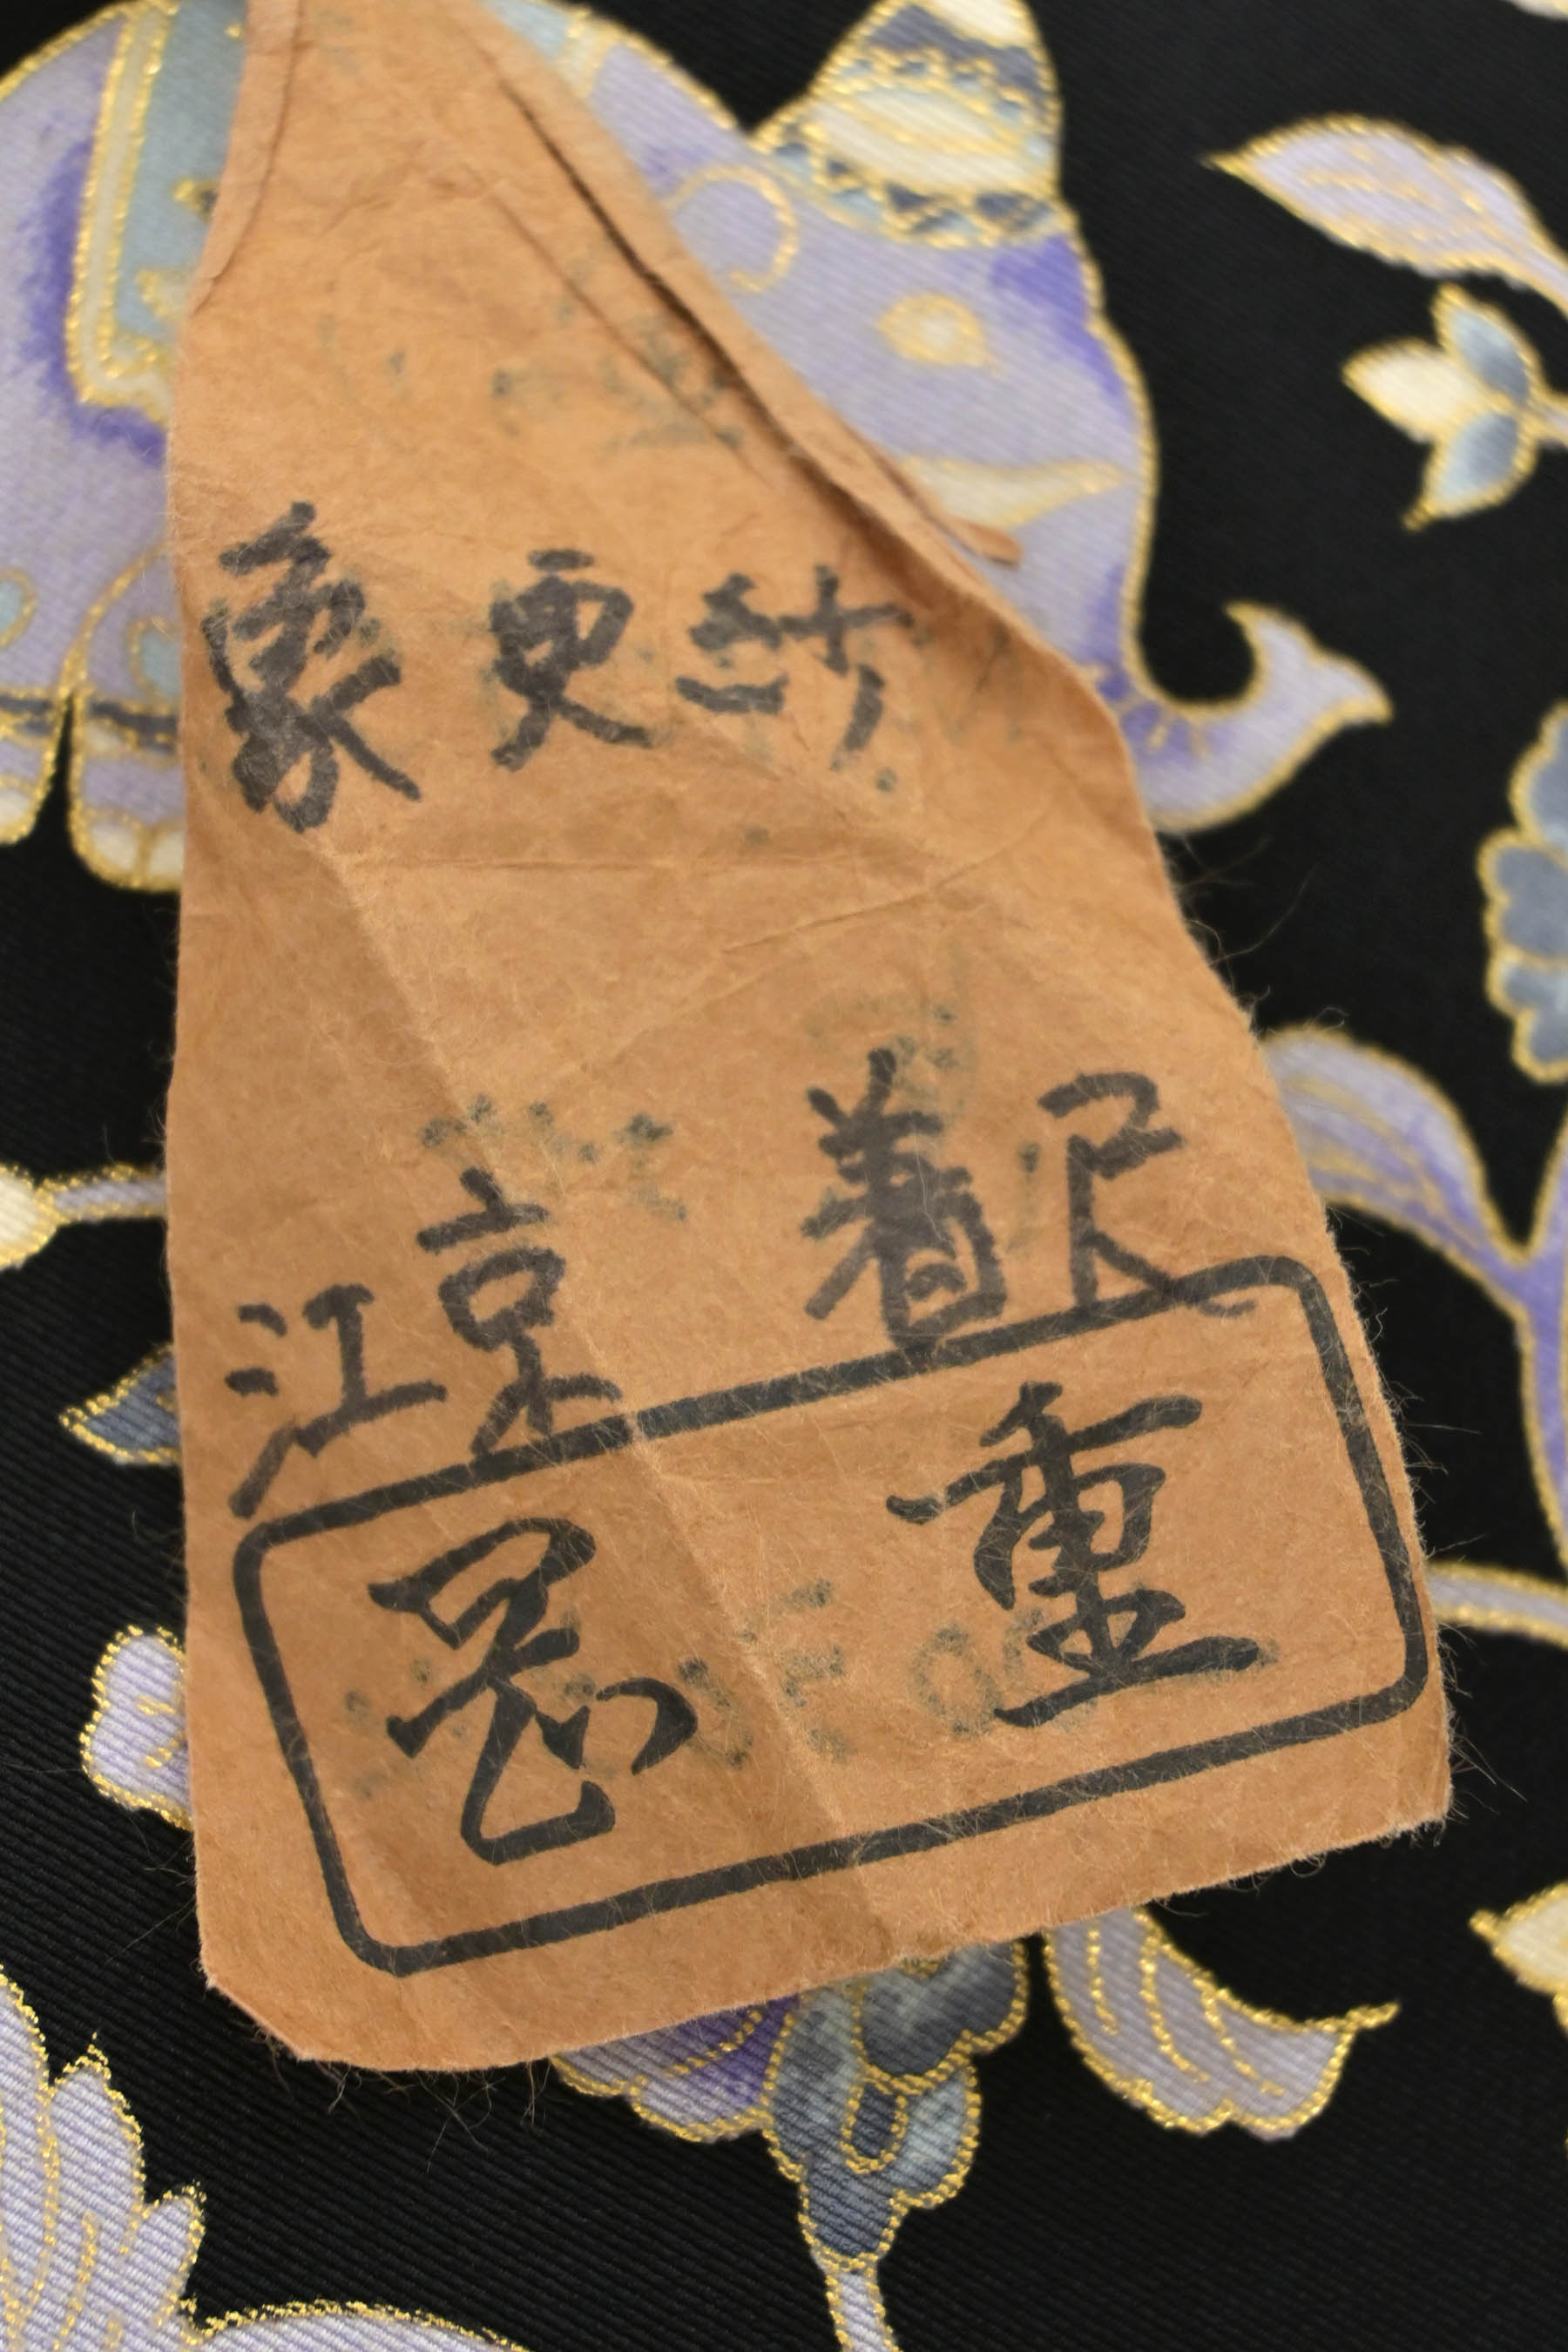 象更紗
江京着尺
岡重